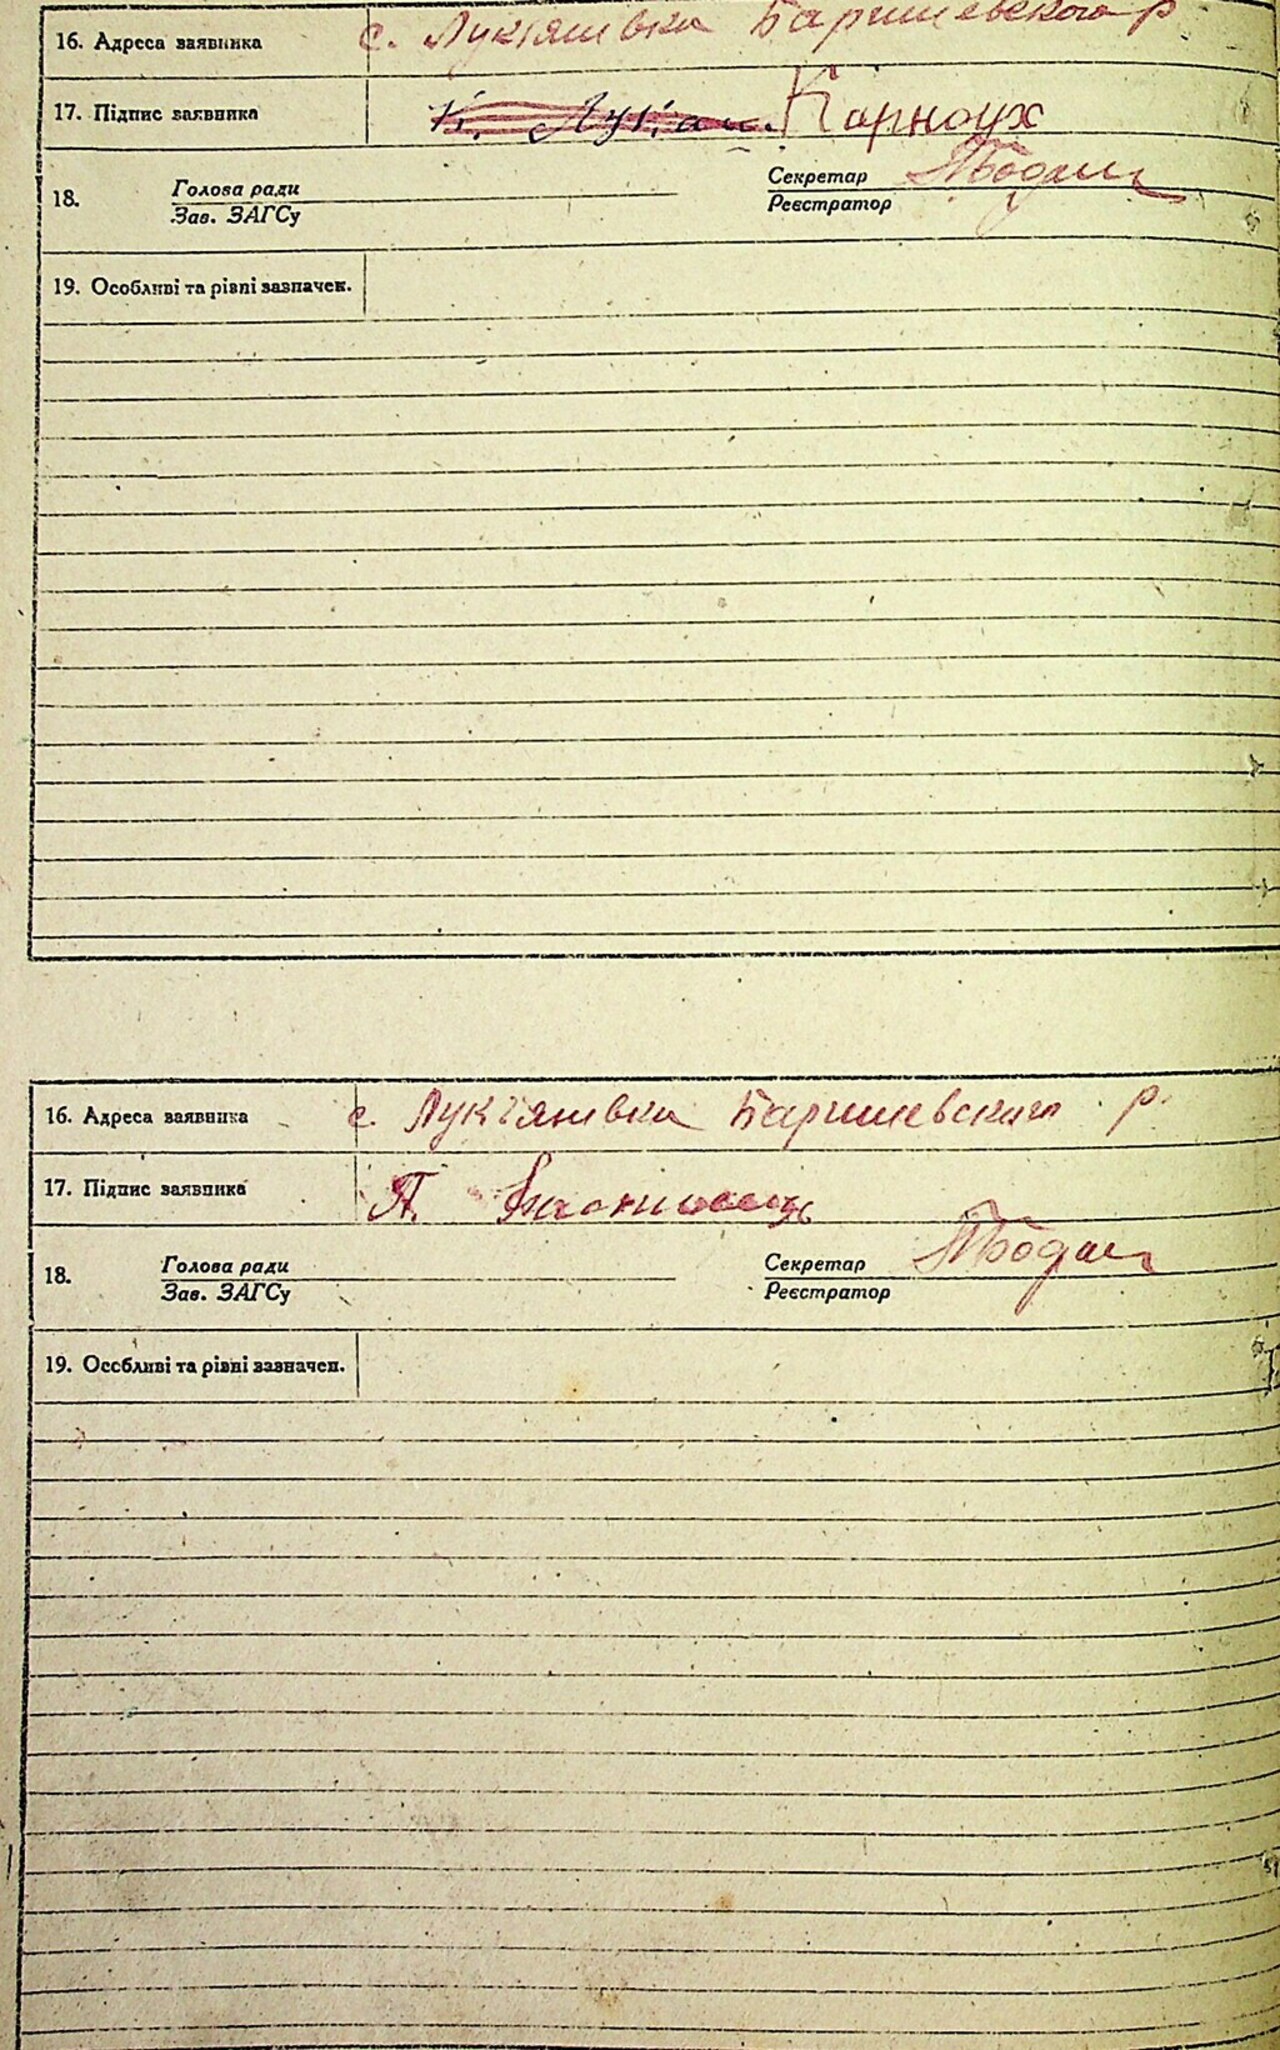 16. Адреса заявника с. Лук'янівка Баришевского р
17. Підпис заявника К. Лукаш. Карноух
18. Голова ради Секретар
Зав. ЗАГСу Реєстратор
19. Особливі та рівні зазначен.
16. Адреса заявника с. Лук'янівка Баришевского р.
17. Підпис заявника П.
18. Голова ради Секретар
Зав. ЗАГСу Реєстратор
19. Особливі та рівні зазначен.